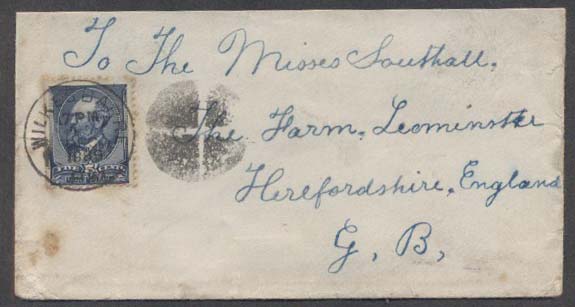 To The Misses Southall.
The Farm. Leominster
Herefordshire, England
G, B,
WILK
7 PM